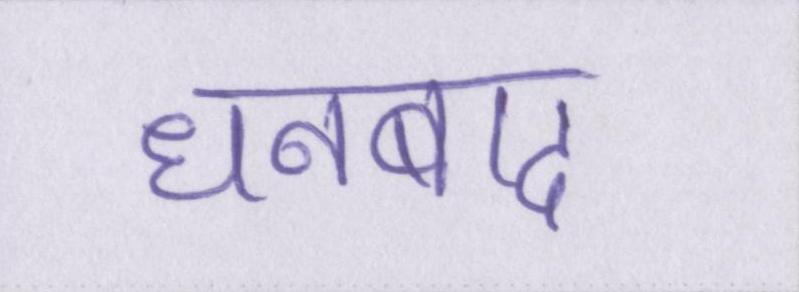 धनबाद